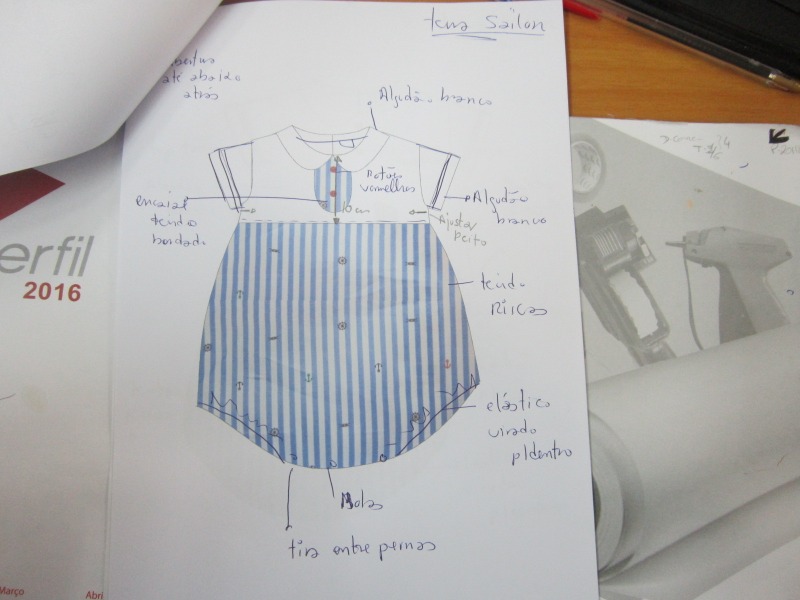 tema Sailon
abertura
até abaixo
atrás
Algodão branco
Botões
vermelhos
encaixe
tecido
bordado
10 cm
Ajustar
peito
Algodão
branco
tecido
Riscas
elástico
virado
p/dentro
Molas
tira entre pernas
erfil
2016
Março
Abri